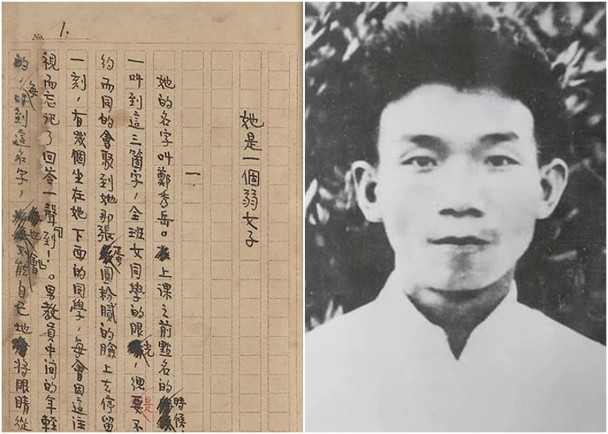 No 1.
她是一個弱女子
一
她的名字叫鄭秀岳。上课之前點名的時候,
一叫到這三箇字,全班女同學的眼光,總要是不
約而同的會聚到她那張蛋圓粉膩的臉上去停留
一刻,有幾個坐在她下面的同學,每會因這注
視而忘記了回答一聲「到!」。男教員中間的年輕
的,每叫到這名字,也會不能自已地將眼睛從